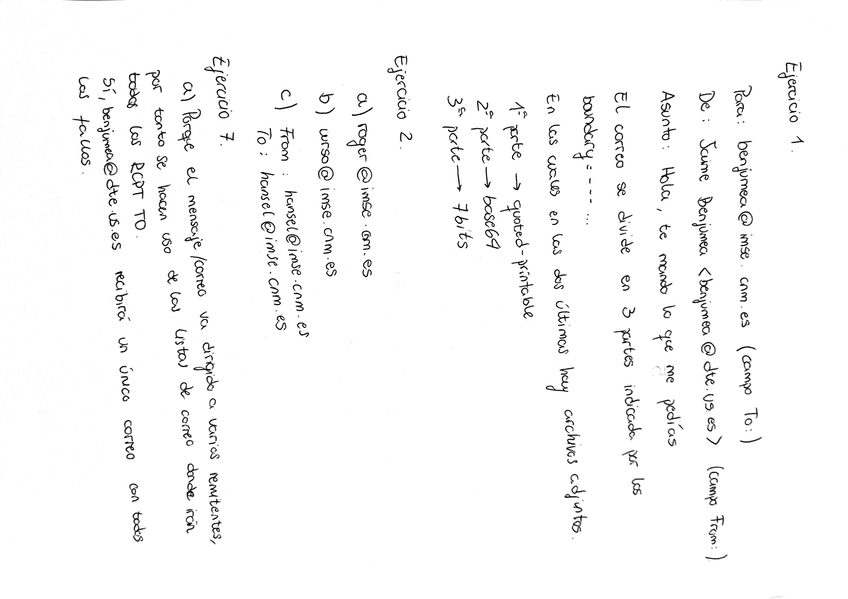 Ejercicio 1.
Para: benjumea@imse.cnm.es (campo To:)
De: Jaime Benjumea <benjumea@dte.us.es> (campo From:)
Asunto: Hola, te mando lo que me pedías
El correo se divide en 3 partes indicada por los
boundary=---- ...
En las cuales en las dos últimas hay archivos adjuntos.
1ª parte → quoted-printable
2ª parte → base64
3ª parte → 7bits
Ejercicio 2.
a) roger@imse.cnm.es
b) urso@imse.cnm.es
c) From: hansel@imse.cnm.es
To: hansel@imse.cnm.es
Ejercicio 7.
a) Porque el mensaje/correo va dirigido a varios remitentes,
por tanto se hacen uso de las listas de correo donde irán
todos los RCPT TO.
Sí, benjumea@dte.us.es recibirá un único correo con todos
los fallos.